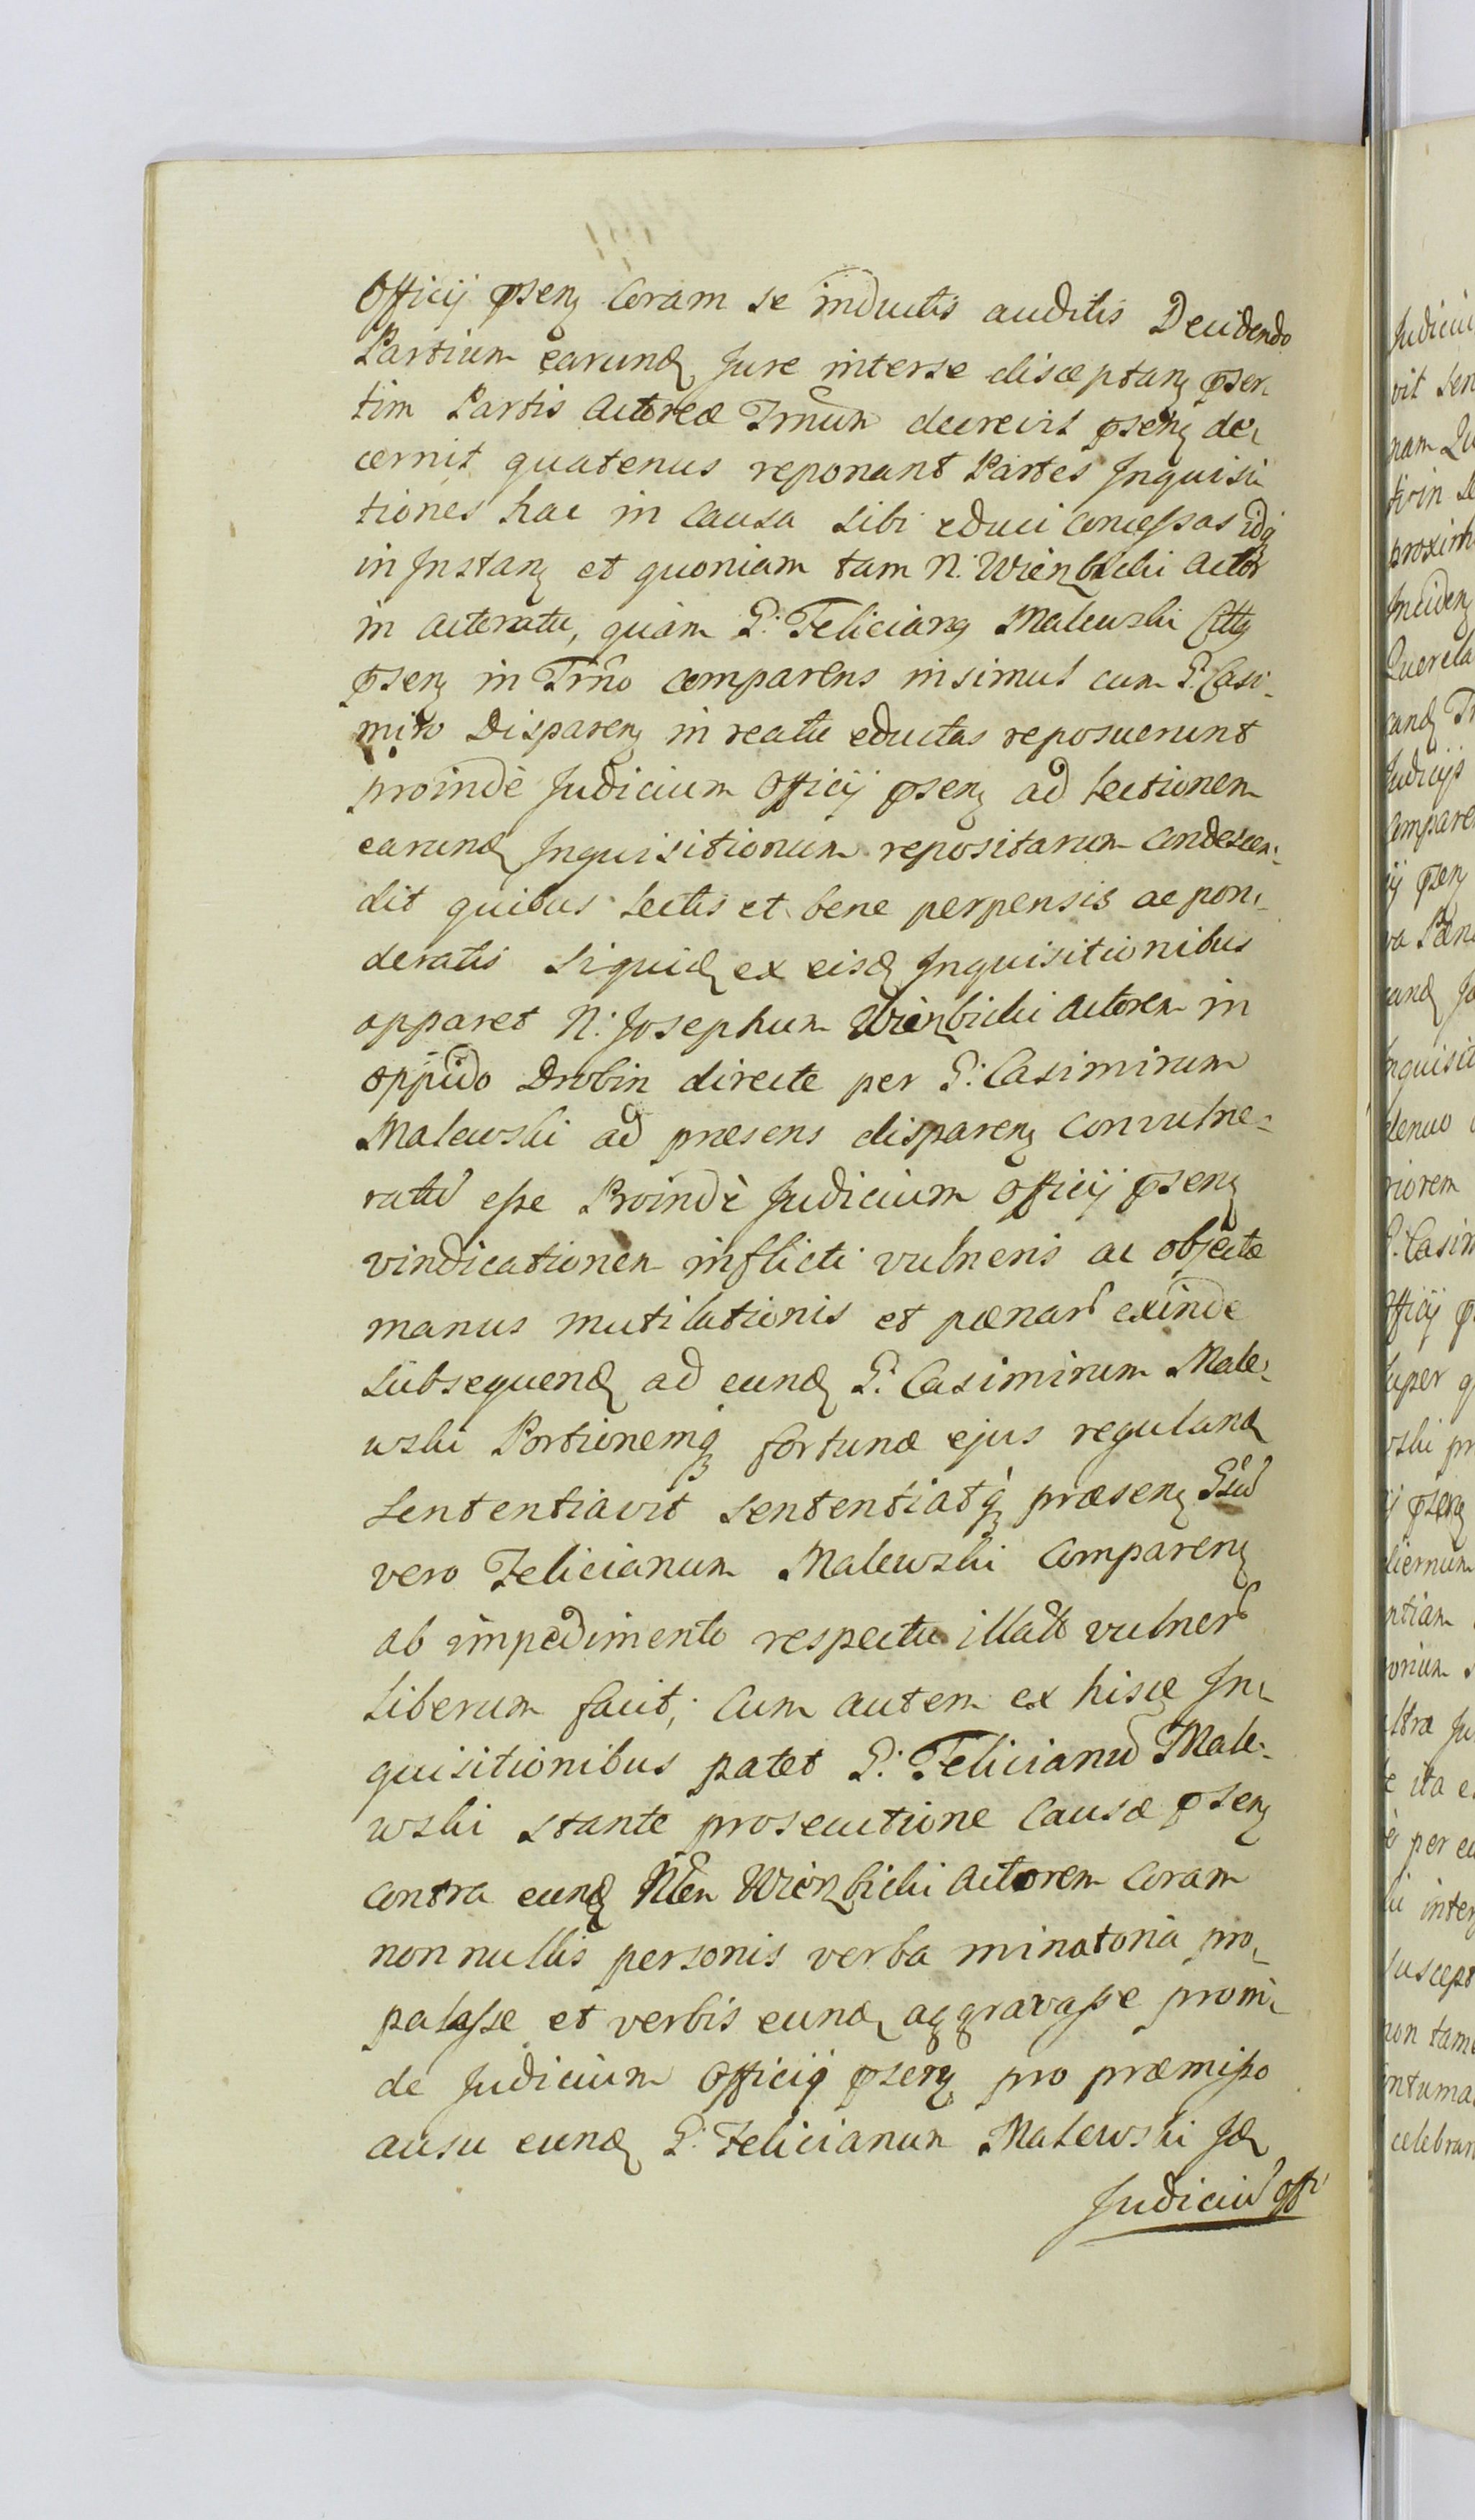 Officij pseng Coram se inductis auditis Decidendo
Partium earund Jure interse disceptang pser
tim Partis Actoreæ Trnum decrevit pseng de
cernit quatenus reponant Partes Inquisi
tiones hac in Causa sibi educi concessas idq
in Instang et quoniam tam N: Wierzbicki Actor
in actoratu, quam G: Feliciang Malewski Citty
pseng in Trno comparens insimul cum G: Casi-
miro Dispareng in reatu eductas reposuerunt
proinde Judicium Officij pseng ad Lectionem
earund Inquisitionum repositarum condescen-
dit quibus Lectis et bene perpensis ac pon
deratis siquid ex eisd Inquisitionibus
apparet N: Josephum Wierzbicki Actorem in
oppido Drobin directe per G: Casimirum
Malewski ad præsens dispareng convulne-
ratu esse Proinde Judicium Officij pseng
vindicationem inflicti vulneris ac objectæ
manus mutilationis et pænar exinde
subsequend ad eund G: Casimirum Male-
wski Portionemq fortunæ ejus reguland
Sententiavit sententiatq præseng Gsu
vero Felicianum Malewski Compareng
ab impedimento respectu illat vulner
Liberum facit; Cum autem ex hisce In
quisitionibus patet G: Felicianu Male-
wski stante prosecutione Causæ pseng
contra eund Nlem Wierzbicki Actorem Coram
non nullis personis verba minatoria pro
palasse et verbis eund aggravasse proin
de Judicium Officij pseng pro præmisso
ausu eund G: Felicianum Malewski Id
Judiciu Offi